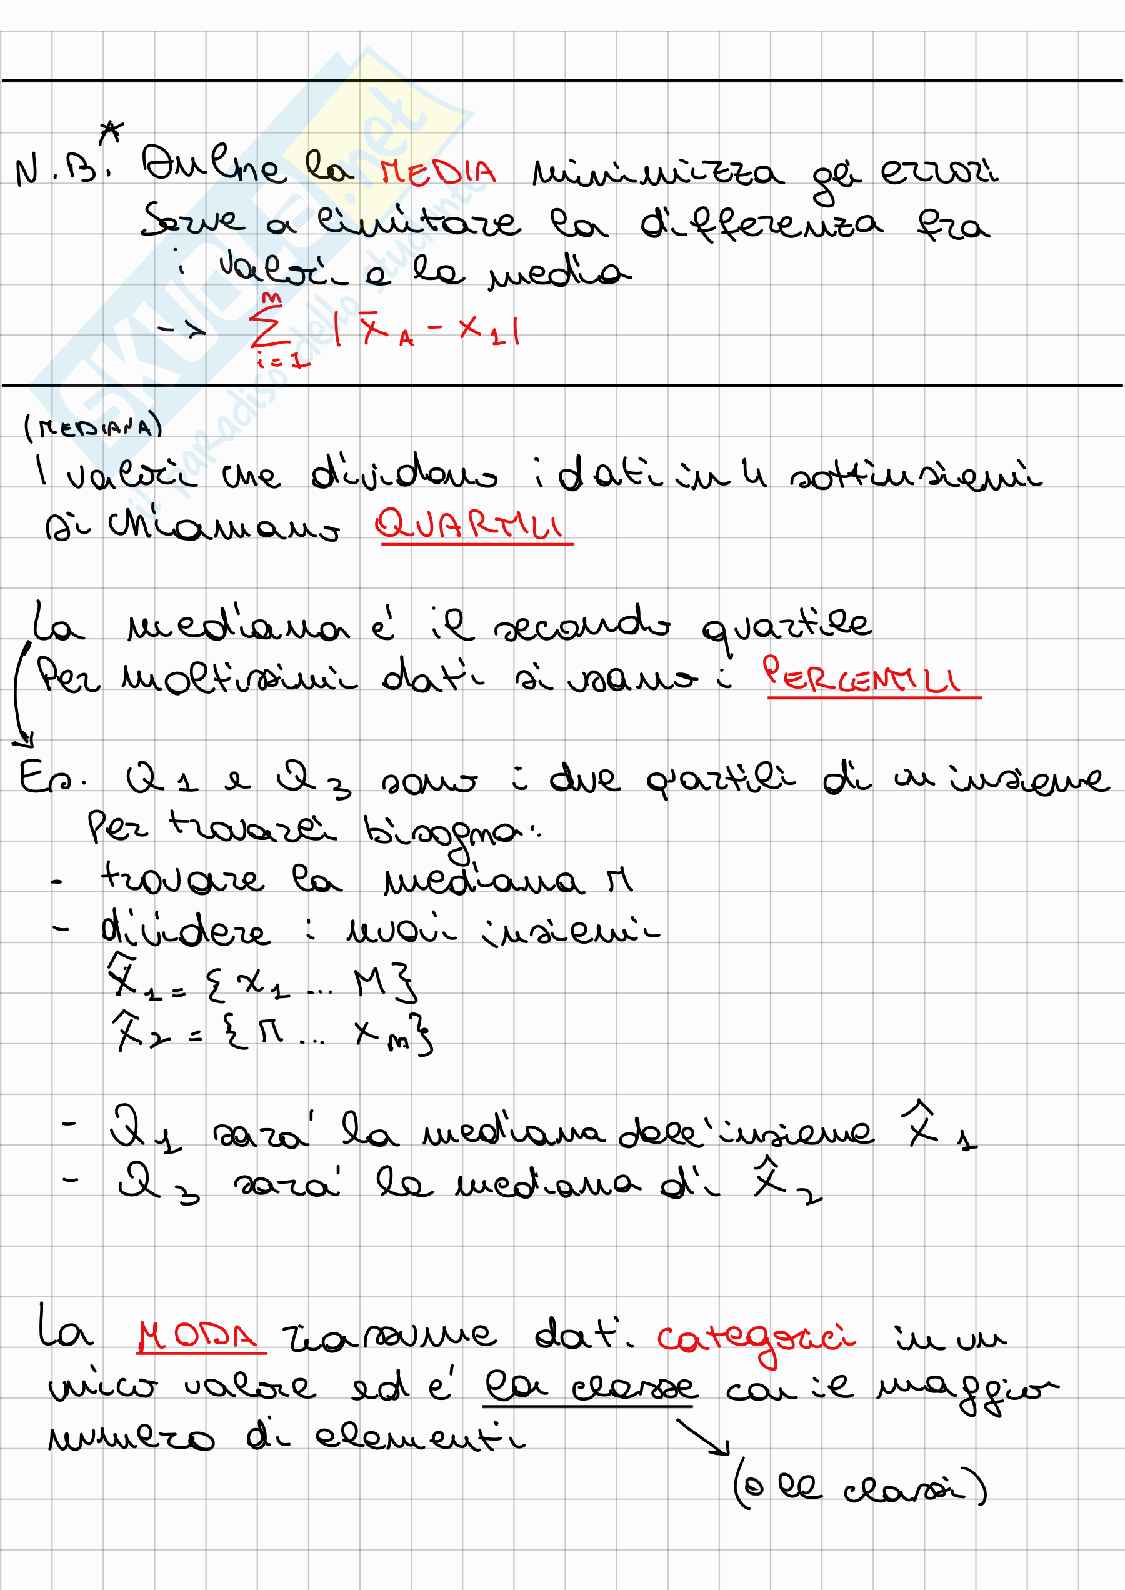 N.B.* Anche la MEDIA minimizza gli errori
Serve a limitare la differenza fra
i valori e la media
-> \sum_{i=1}^{n} | x̄_A - x_1 |
(MEDIANA)
I valori che dividono i dati in 4 sottinsiemi
si chiamano QUARTILI
La mediana é il secondo quartile
Per moltissimi dati si usano i PERCENTILI
Es. Q1 e Q3 sono i due quartili di un insieme
Per trovarli bisogna:
- trovare la mediana M
- dividere i nuovi insiemi
X̂1 = {x1 ... M}
X̂2 = {M ... xn}
- Q1 sará la mediana dell'insieme X̂1
- Q3 sará la mediana di X̂2
La MODA riassume dati categorici in un
unico valore ed é la classe con il maggior
numero di elementi
(o le classi)
SKUOLA.net
il paradiso dello studente